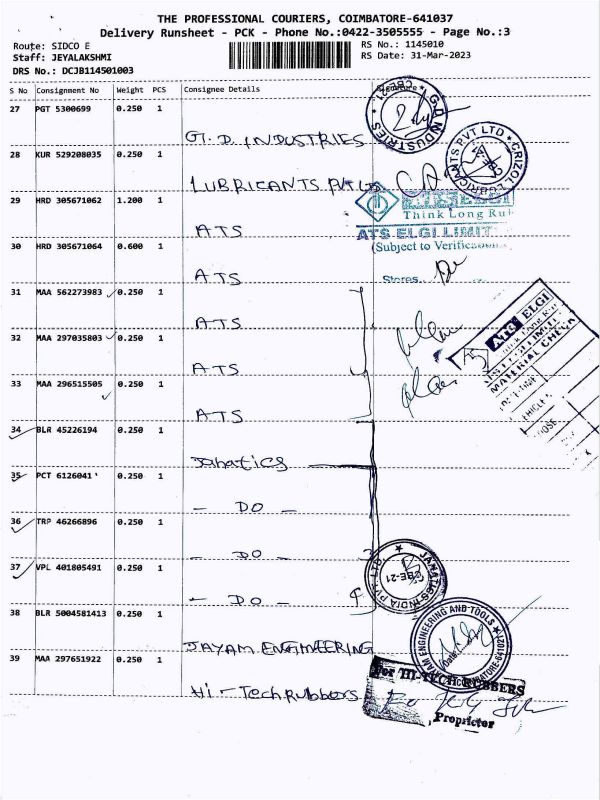 THE PROFESSIONAL COURIERS, COIMBATORE-641037
Delivery Runsheet - PCK - Phone No.:0422-3505555 - Page No.:3
Route: SIDCO E RS No.: 1145010
Staff: JEYALAKSHMI RS Date: 31-Mar-2023
DRS No.: DCJB114501003
S No Consignment No Weight PCS Consignee Details Signature
27 PGT 5300699 0.250 1
G.D. INDUSTRIES
G.D. INDUSTRIES
28 KUR 529208035 0.250 1
LUBRICANTS PVT LTD
29 HRD 305671062 1.200 1
ATS
ATS ELGI
Think Long Run
ATS ELGI LIMIT
(Subject to Verification
30 HRD 305671064 0.600 1
ATS
Stores
31 MAA 562273983 0.250 1
ATS
32 MAA 297035803 0.250 1
ATS
ATS ELGI
MATERIAL CHECK
33 MAA 296515505 0.250 1
ATS
34 BLR 45226194 0.250 1
Janatics
35 PCT 6126041 0.250 1
- DO -
36 TRP 46266896 0.250 1
- DO -
37 VPL 401805491 0.250 1
- DO -
JANATICS INDIA PVT LTD
CBE-21
38 BLR 5004581413 0.250 1
JAYAM ENGINEERING
JAYAM ENGINEERING AND TOOLS
COIMBATORE-641021
39 MAA 297651922 0.250 1
Hi-Tech Rubbers
For HI-TECH RUBBERS
Proprietor